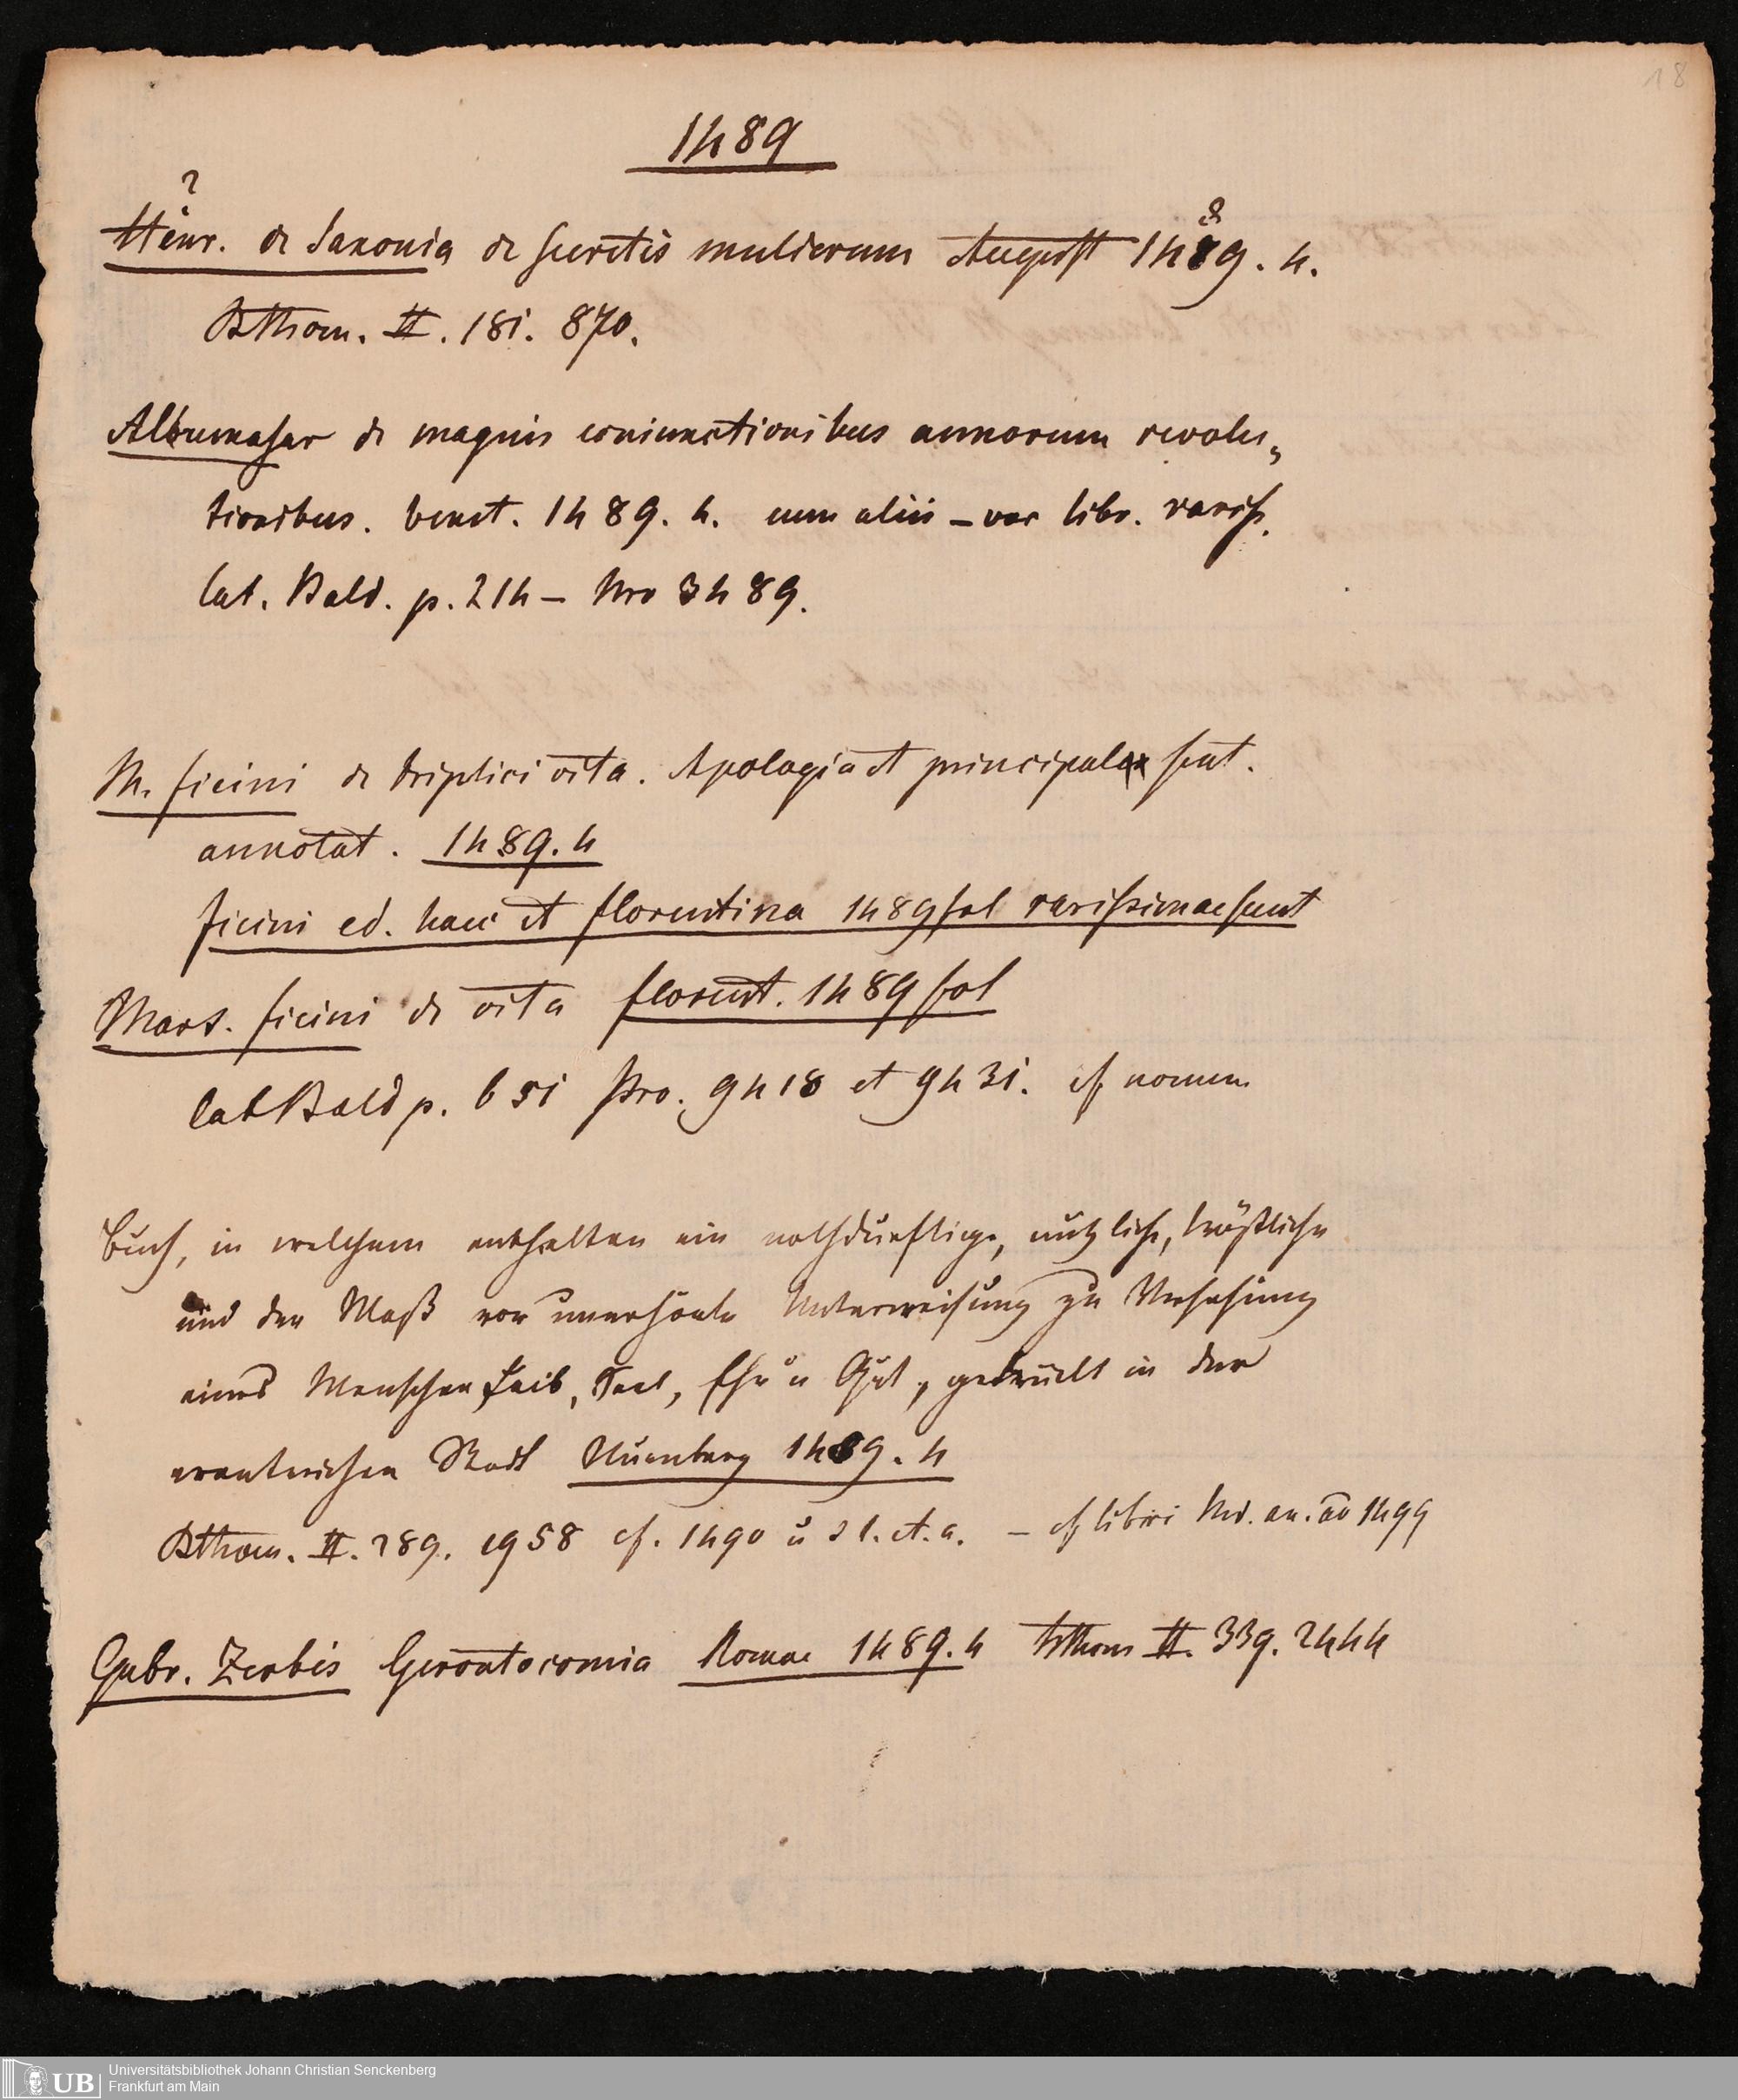 18
1489
?
Henr. de Saxonia de secretis mulierum August 1489. 4.
8
Bthom. II. 181. 870.
Albumasar de magnis coniunctionibus annorum revolu=
tionibus. Venet. 1489. 4. cum aliis – vor libr. rariss.
Cat. Bald. p. 214 – Nro 3489.
M. Ficini de triplici vita. Apologia et principales sent.
annotat. 1489. 4
Ficini ed. haec et Florentina 1489 fol rarissimae sunt
Mars. Ficini de vita Florent. 1489 fol
Cat Bald p. 651 Nro. 9418 et 9431. cf nomen
Buch, in welchem enthalten ein nothdürftige, nützliche, tröstliche
und der Maß vor unerhörte Unterweisung zu Versehung
eines Menschen Leib, Seel, Ehr u Gut, gedruckt in der
Stadt Nürnberg 1489. 4
Bthom. II. 289. 1958 cf. 1490 u s l. et. a. – cf libri Md. an. ao 1499
Gabr. Zerbis Gerontocomia Romae 1489. 4 Bthom II. 339. 2444
UB
Universitätsbibliothek Johann Christian Senckenberg
Frankfurt am Main